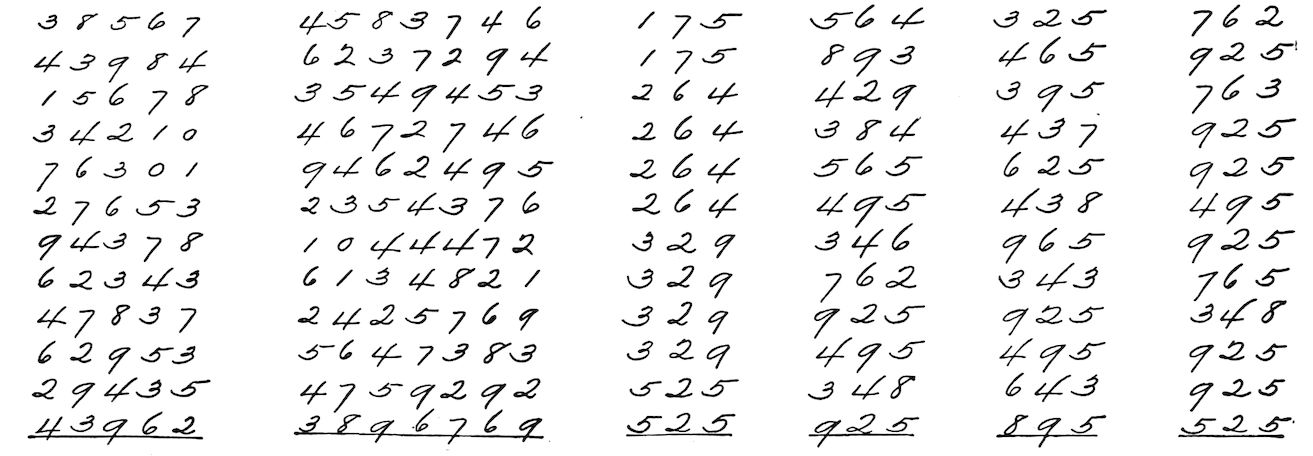 38567 4583746 175 564 325 762
43984 6237294 175 893 465 925
15678 3549453 264 429 395 763
34210 4672746 264 384 437 925
76301 9462495 264 565 625 925
27653 2354376 264 495 438 495
94378 1044472 329 346 965 925
62343 6134821 329 762 343 765
47837 2425769 329 925 925 348
62953 5647383 329 495 495 925
29435 4759292 525 348 643 925
43962 3896769 525 925 895 525